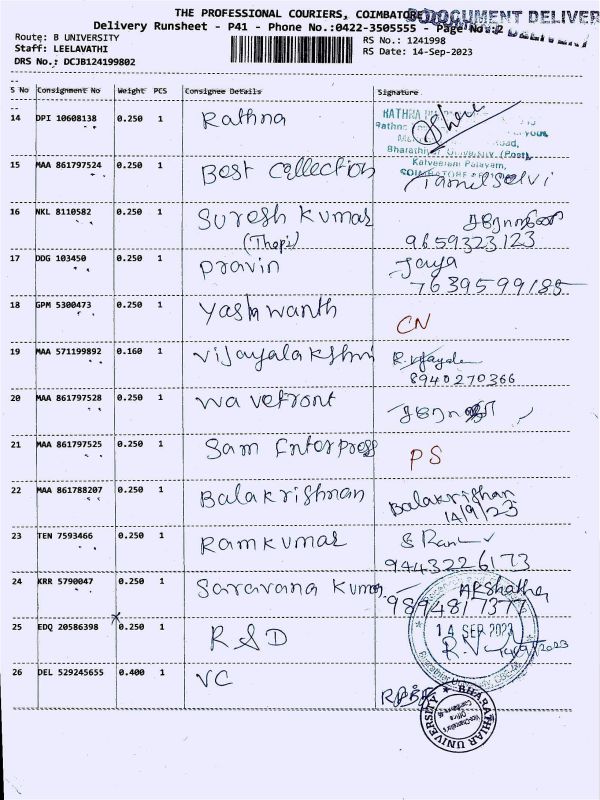 THE PROFESSIONAL COURIERS, COIMBATORE
DOCUMENT DELIVER
Delivery Runsheet - P41 - Phone No.:0422-3505555 - Page No.:2
DELIVERY
Route: B UNIVERSITY
RS No.: 1241998
Staff: LEELAVATHI
RS Date: 14-Sep-2023
DRS No.: DCJB124199802
S No Consignment No Weight PCS Consignee Details Signature
14 DPI 10608138 0.250 1 Rathna
Road,
Bharathiar University (Post),
Kalveeram Palayam,
15 MAA 861797524 0.250 1 Best collection Tamil Selvi
16 NKL 8110582 0.250 1 Suresh Kumar
(Thopi) 9659323123
17 DDG 103450 0.250 1 Pravin Jaya
7639599185
18 GPM 5300473 0.250 1 Yashwanth CN
19 MAA 571199892 0.160 1 Vijayalakshmi R. Vijayala
8940270366
20 MAA 861797528 0.250 1 wavefront
21 MAA 861797525 0.250 1 Sam Enterpress PS
22 MAA 861788207 0.250 1 Balakrishnan Balakrishan
14/9/23
23 TEN 7593466 0.250 1 Ramkumar
9443226173
24 KRR 5790047 0.250 1 Saravana Kumar.
9894817377
14 SEP 2023
25 EDQ 20586398 0.250 1 R&D R.V 14/9/2023
26 DEL 529245655 0.400 1 VC
BHARATHIAR UNIVERSITY